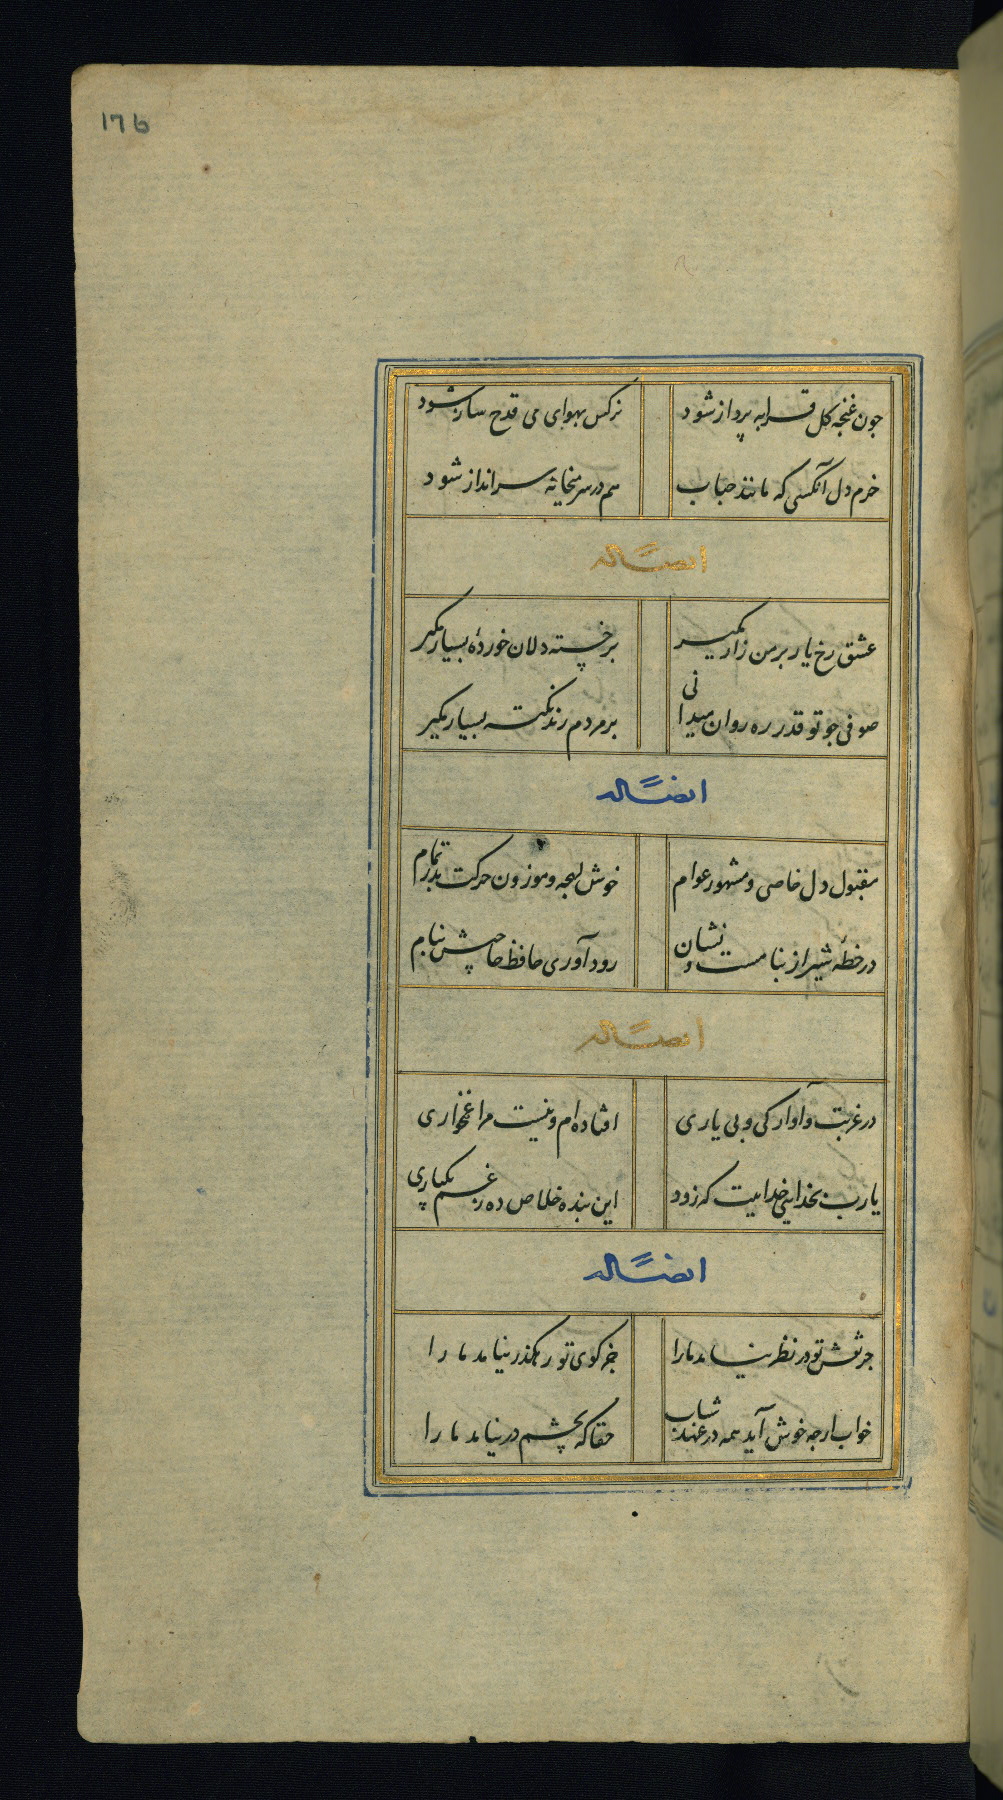 176
جون غنجه کل قرابه پرداز شود نرکس بهوای می قدح ساز شود
خرم دل آنکسی که مانند حباب هم در سر میخانه سرانداز شود
ایضاً له
عشق رخ یار بر من زار مکیر بر خسته دلان خوردهٔ بسیار مکیر
صوفی جو تو قدر ره روان میدانی بر مردم رند نکته بسیار مکیر
ایضاً له
مقبول دل خاص و مشهور عوام خوش لهجه و موزون حرکت بدر تمام
در خطهٔ شیراز بنامست و نشان رود آوری حافظ حاجش بنام
ایضاً له
در غربت و آوارکی و بی یاری افتاده‌ام و نیست مرا غمخواری
یا رب بخدایی خداییت که زود این بنده خلاص ده ز غم یکباری
ایضاً له
جز نقش تو در نظر نیامد ما را جز کوی تو رهکذر نیامد ما را
خواب ارجه خوش آید همه در عهد شباب حقا که بچشم در نیامد ما را